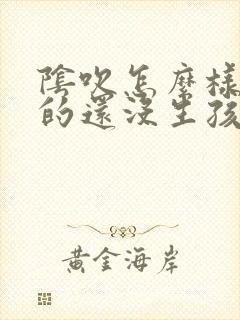 陰吹怎麼樣
的還沒生孩
黃金海岸